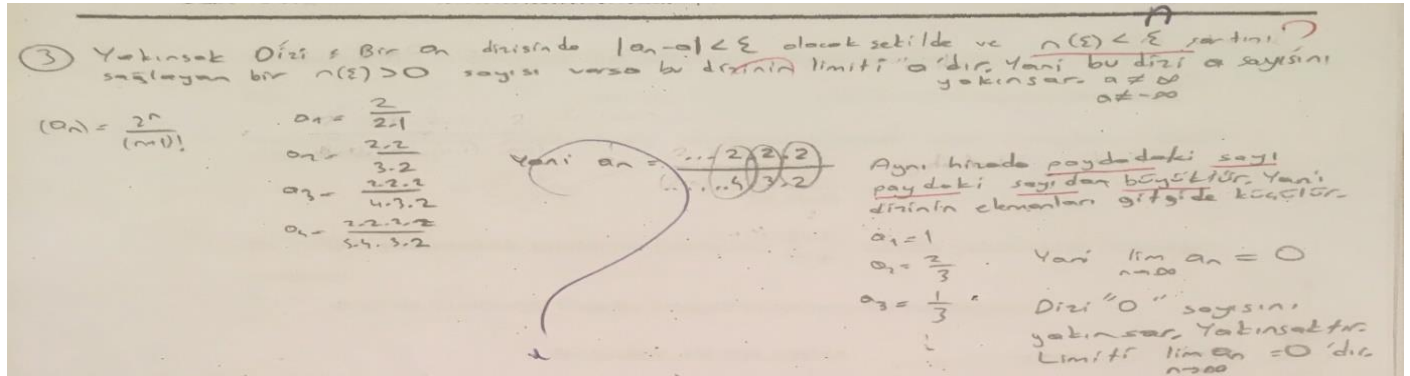 n
③ Yakınsak Dizi : Bir an dizisinde |an-a| < ε olacak şekilde ve n(ε) < ε şartını ?
sağlayan bir n(ε) > 0 sayısı varsa bu dizinin limiti "a"dır. Yani bu dizi a sayısını
yakınsar. a ≠ ∞
a ≠ -∞
(an) = 2^n / (n+1)!
a1 = 2 / 2.1
a2 = 2.2 / 3.2
a3 = 2.2.2 / 4.3.2
a4 = 2.2.2.2 / 5.4.3.2
Yani an = ...2.2.2 / ...4.3.2
Aynı hizada paydadaki sayı
paydaki sayıdan büyüktür. Yani
dizinin elemanları gitgide küçülür.
a1 = 1
a2 = 2/3
a3 = 1/3
⋮
Yani lim n→∞ an = 0
Dizi "0" sayısını
yakınsar. Yakınsaktır.
Limiti lim n→∞ an = 0 'dır.